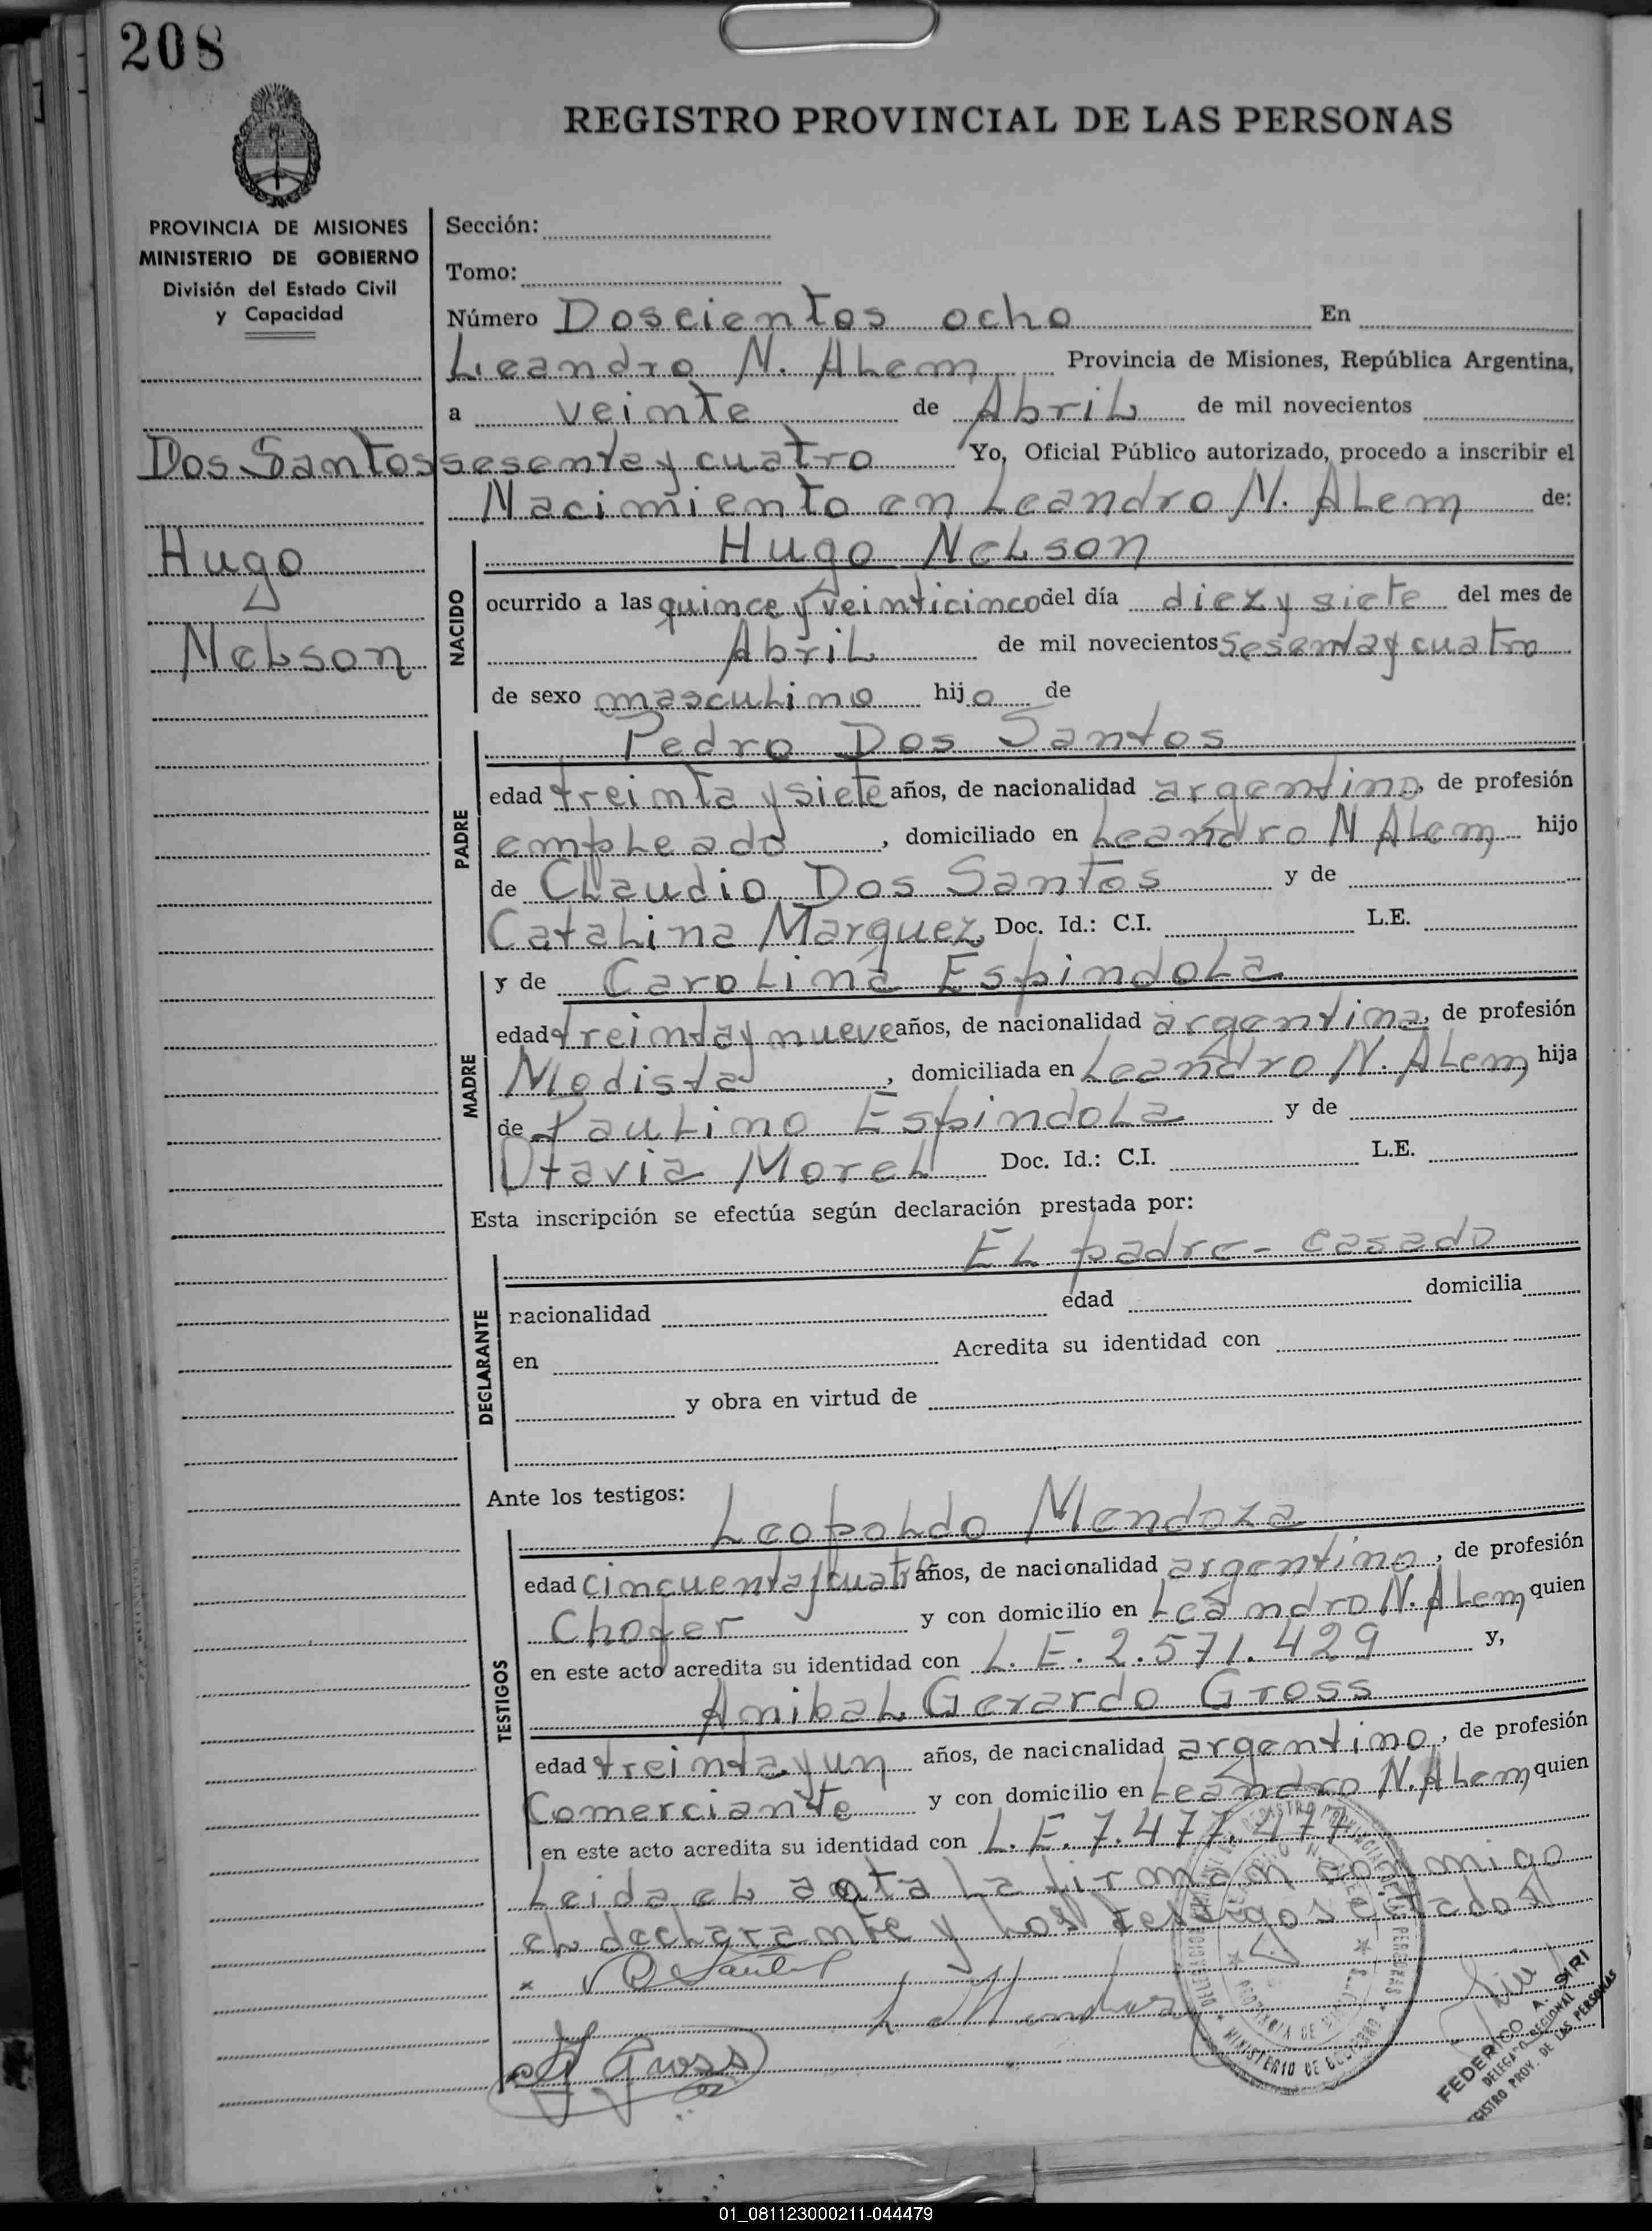 208
REGISTRO PROVINCIAL DE LAS PERSONAS
PROVINCIA DE MISIONES
MINISTERIO DE GOBIERNO
División del Estado Civil
y Capacidad
Dos Santos
Hugo
Nelson
Sección:
Tomo:
Número Doscientos ocho En
Leandro N. Alem Provincia de Misiones, República Argentina,
a veinte de Abril de mil novecientos
sesenta y cuatro Yo, Oficial Público autorizado, procedo a inscribir el
Nacimiento en Leandro N. Alem de:
NACIDO
Hugo Nelson
ocurrido a las quince y veinticinco del día diez y siete del mes de
Abril de mil novecientos sesenta y cuatro
de sexo masculino hijo de
PADRE
Pedro Dos Santos
edad treinta y siete años, de nacionalidad argentino, de profesión
empleado, domiciliado en Leandro N Alem hijo
de Claudio Dos Santos y de
Catalina Marquez, Doc. Id.: C.I. L.E.
MADRE
y de Carolina Espindola
edad treinta y nueve años, de nacionalidad argentina, de profesión
Modista, domiciliada en Leandro N. Alem hija
de Paulino Espindola y de
Otavia Morel Doc. Id.: C.I. L.E.
Esta inscripción se efectúa según declaración prestada por:
DECLARANTE
El padre - casado
nacionalidad edad domicilia
en Acredita su identidad con
y obra en virtud de
Ante los testigos:
TESTIGOS
Leopoldo Mendoza
edad cincuenta y cuatro años, de nacionalidad argentino, de profesión
Chofer y con domicilio en Leandro N. Alem quien
en este acto acredita su identidad con L. E. 2.571.429 y,
Anibal Gerardo Gross
edad treinta y un años, de nacionalidad argentino, de profesión
Comerciante y con domicilio en Leandro N. Alem quien
en este acto acredita su identidad con L. E. 7.477.477
Leida el acta la firman conmigo
el declarante y los testigos citados
Gross
MINISTERIO DE GOBIERNO
FEDERICO A. SIRI
DELEGADO REGIONAL
REGISTRO PROV. DE LAS PERSONAS
01_081123000211-044479